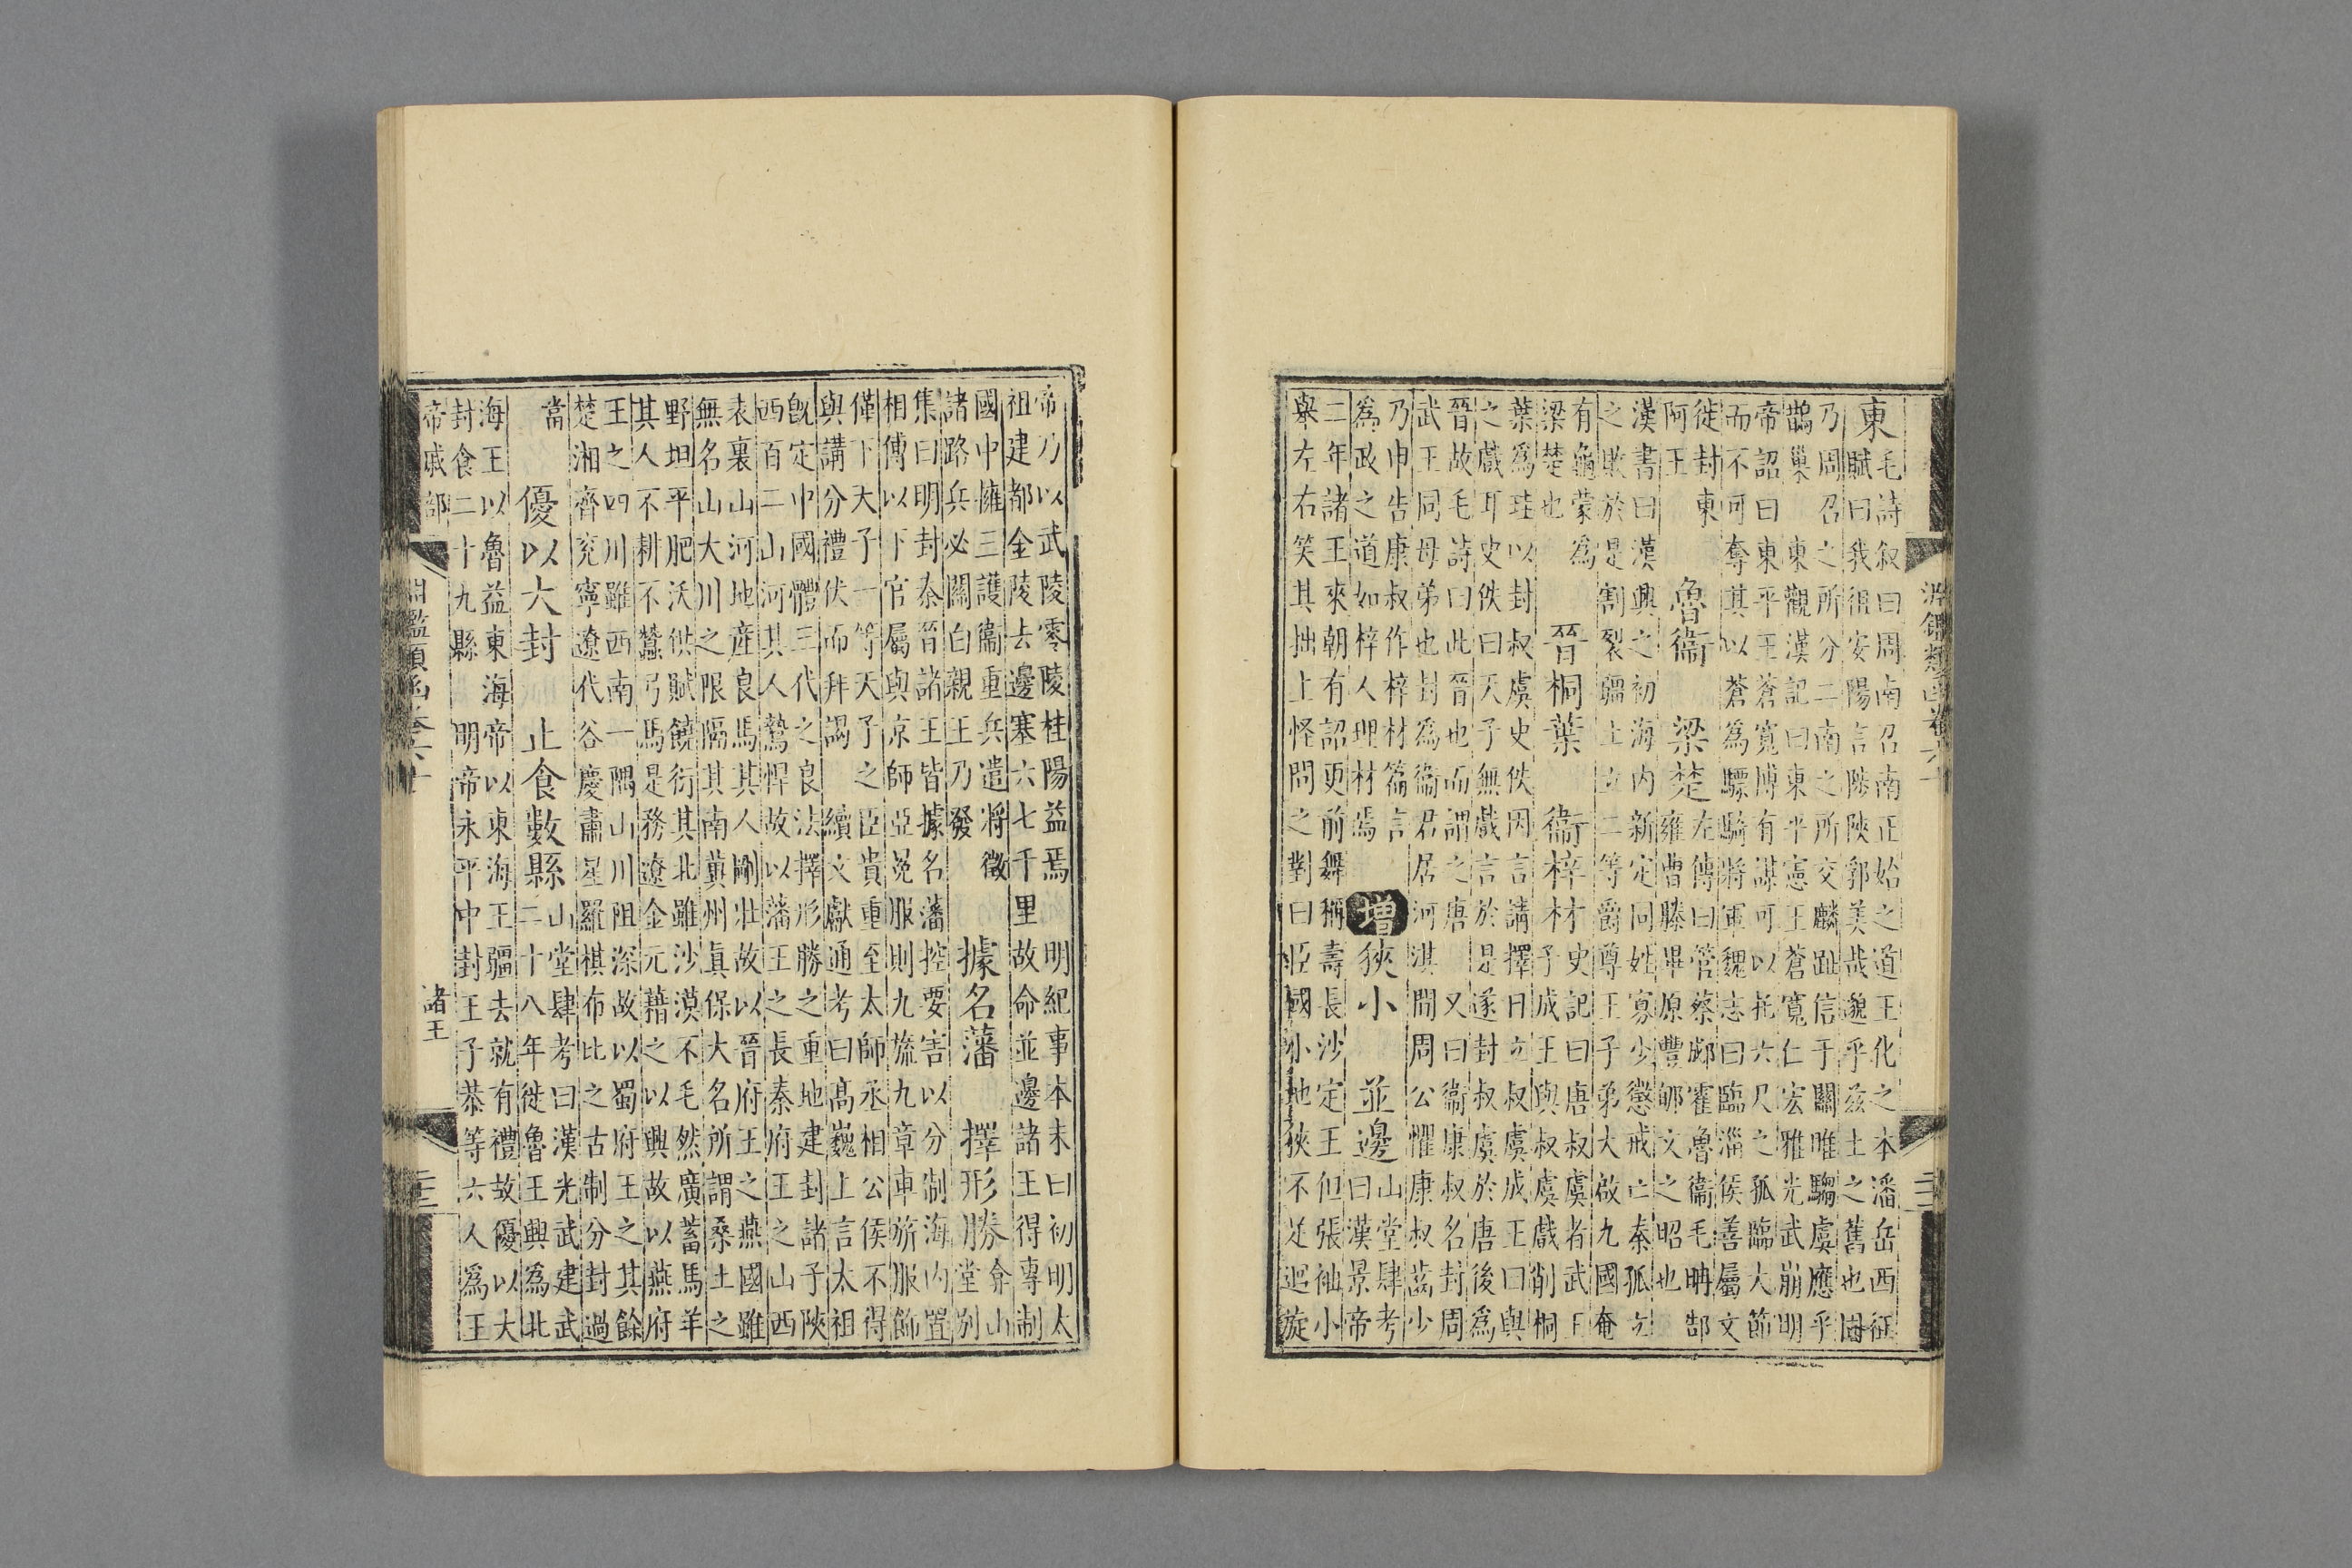 東
毛詩叙曰周南召南正始之道王化之本潘岳西征
賦曰我徂安陽言陟陝郭美哉邈乎茲土之舊也固
乃周召之所分二南之所交麟趾信于關雎騶虞應乎
鵲巢 東觀漢記曰東平憲王蒼寬仁宏雅光武崩明
帝詔曰東平王蒼寬博有謀可以托六尺之孤臨大節
而不可奪其以蒼為驃騎將軍魏志曰臨淄侯善屬文
徙封東
阿王
魯衞 梁楚
左傳曰管蔡郕霍魯衞毛聃郜
雍曹滕畢原豐郇文之昭也
漢書曰漢興之初海内新定同姓寡少懲戒亡秦孤立
之敗於是割裂疆土立二等爵尊王子弟大啟九國奄
有龜蒙為
梁楚也
晉桐葉 衞梓材
史記曰唐叔虞者武王
子成王與叔虞戲削桐
葉為珪以封叔虞史佚因言請擇日立叔虞成王曰與
之戲耳史佚曰天子無戲言於是遂封叔虞於唐後為
晉故毛詩曰此晉也而謂之唐 又曰衞康叔名封周
武王同母弟也封為衞君居河淇間周公懼康叔齒少
乃申告康叔作梓材篇言
為政之道如梓人理材焉
增 狹小 並邊
山堂肆考
曰漢景帝
二年諸王來朝有詔更前舞稱壽長沙定王但張袖小
舉左右笑其拙上怪問之對曰臣國小地狹不足迴旋
淵鑑類函卷六十
帝乃以武陵零陵桂陽益焉 明紀事本末曰初明太
祖建都金陵去邊塞六七千里故命並邊諸王得專制
國中擁三護衞重兵遣將徵
諸路兵必關白親王乃發
據名藩 擇形勝
弇山
堂別
集曰明封秦晉諸王皆據名藩控要害以分制海内置
相傅以下官屬與京師亞冕服則九旒九章車旂服飾
僅下天子一等天子之臣貴重至太師丞相公侯不得
與講分禮伏而拜謁 續文獻通考曰高巍上言太祖
旣定中國體三代之良法擇形勝之重地建封諸子陝
西百二山河其人鷙悍故以藩王之長秦府王之山西
表裏山河地產良馬其人剛壯故以晉府王之燕國雖
無名山大川之限隔其南冀州眞保大名所謂桑土之
野坦平肥沃供賦饒衍其北雖沙漠不毛然廣蓄馬羊
其人不耕不蠶弓馬是務遼金元藉之以興故以燕府
王之四川雖西南一隅山川阻深故以蜀府王之其餘
楚湘齊兖寧遼代谷慶肅星羅棋布比之古制分封過
當
優以大封 止食數縣
山堂肆考曰漢光武建武
二十八年徙魯王興為北
海王以魯益東海帝以東海王疆去就有禮故優以大
封食二十九縣 明帝永平中封王子恭等六人為王
帝戚部 諸王